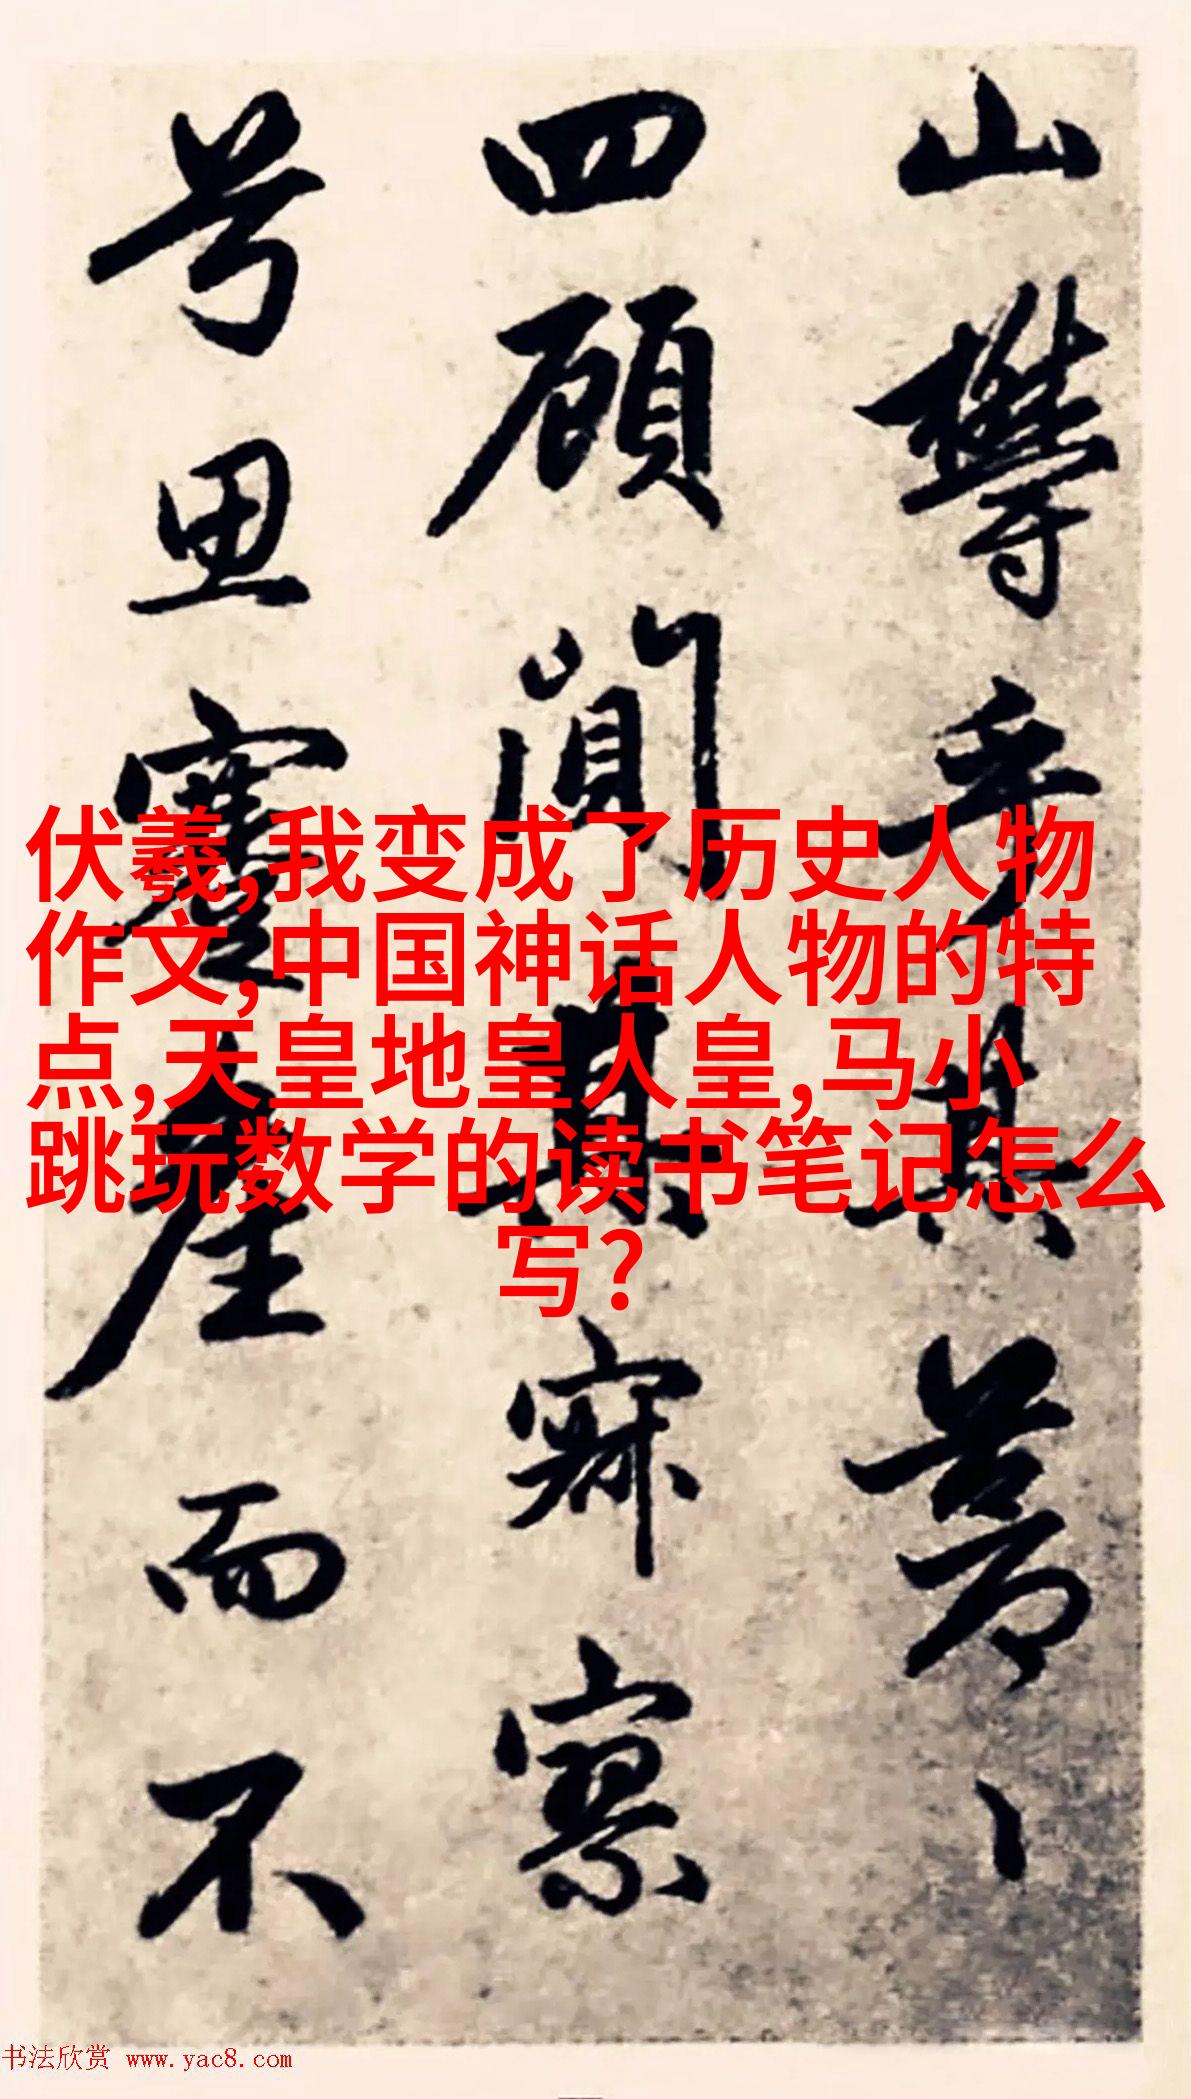 山鬱乎其蒼蒼
四顧闃其寂寥
兮思蹇產而不
伏羲,我变成了历史人物
作文,中国神话人物的特
点,天皇地皇人皇,马小
跳玩数学的读书笔记怎么
写?
书法欣赏 www.yac8.com